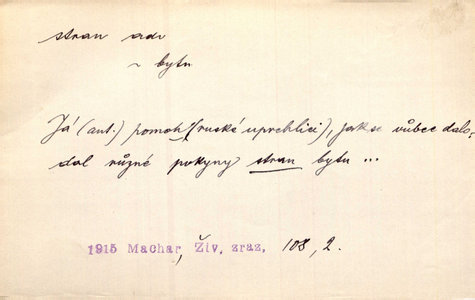 stran adv
~ bytu
Já (aut.) pomoh' (ruské uprchlici), jak se vůbec dalo,
dal různé pokyny stran bytu ...
1915 Machar, Živ. zraz. 108, 2.